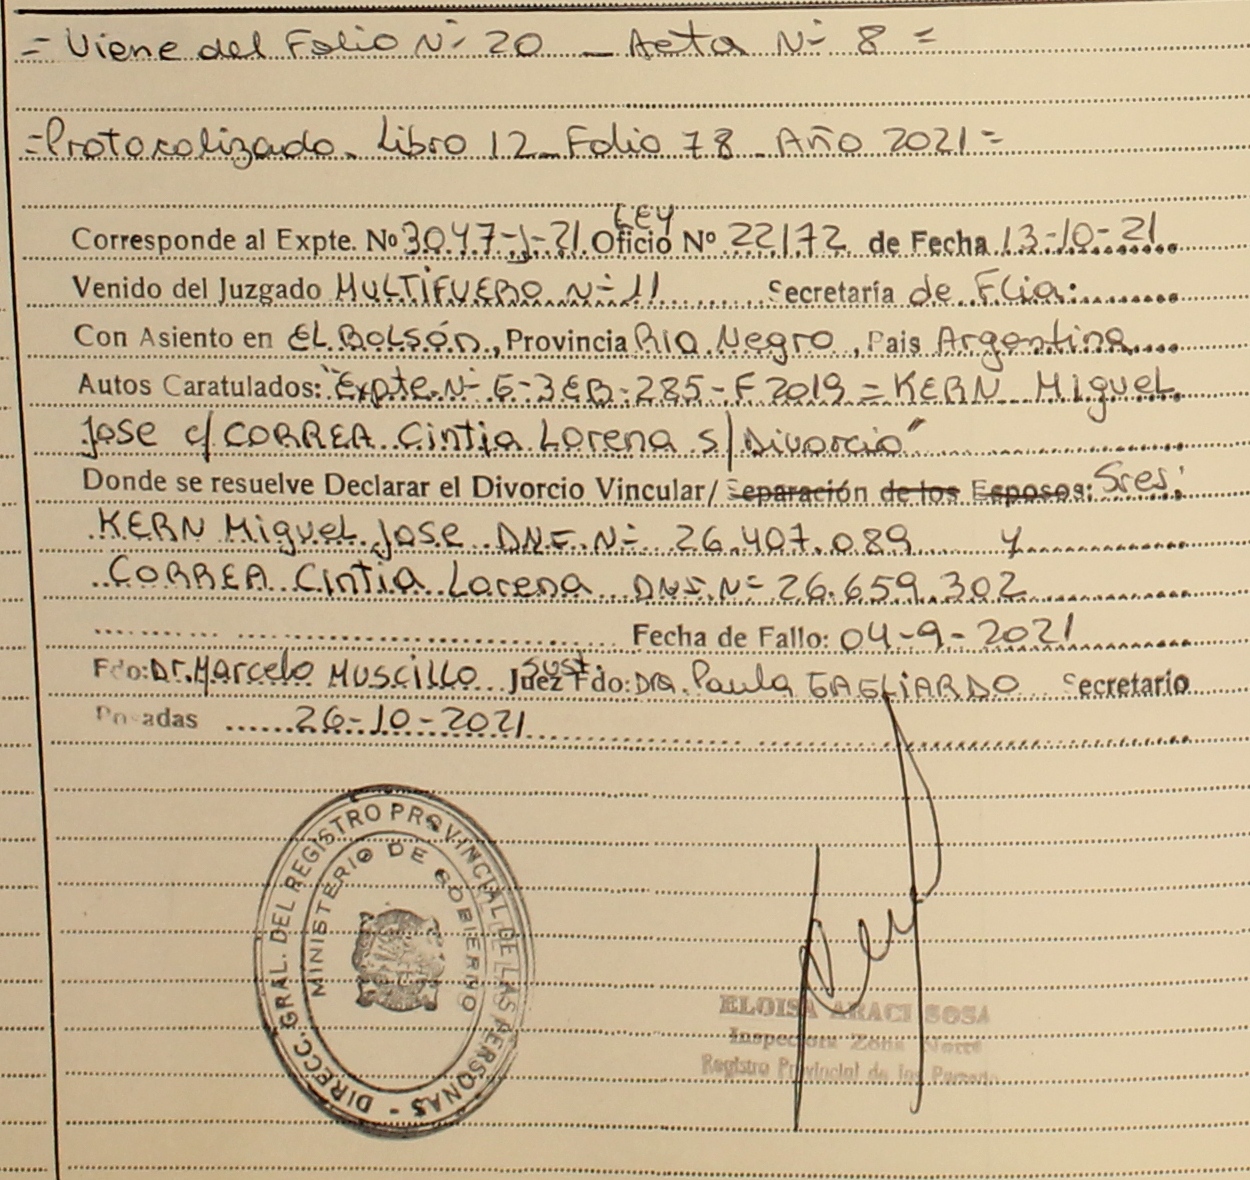 = Viene del Folio Nº 20 _ Acta Nº 8 =
= Protocolizado _ Libro 12 _ Folio 78 _ Año 2021 =
LEY
Corresponde al Expte. Nº 3047-J-21 Oficio Nº 22172 de Fecha 13-10-21
Venido del Juzgado MULTIFUERO Nº 11 Secretaría de Flia:
Con Asiento en EL BOLSÓN, Provincia Rio Negro, Pais Argentina
Autos Caratulados: "Expte Nº G-3EB-285-F2019 = KERN Miguel
Jose c/ CORREA Cintia Lorena s/ Divorcio"
Donde se resuelve Declarar el Divorcio Vincular/ Separación de los Esposos: Sres:
KERN Miguel Jose DNI Nº 26.407.089 y
CORREA Cintia Lorena DNI Nº 26.659.302
Fecha de Fallo: 04-9-2021
Fdo: Dr. Marcelo MUSCILLO Juez Sust. Fdo: Dra. Paula GAGLIARDO Secretario
Posadas 26-10-2021
DIRECC. GRAL. DEL REGISTRO PROVINCIAL DE LAS PERSONAS -
MINISTERIO DE GOBIERNO
ELOISA ARACI SOSA
Inspectora Zona Norte
Registro Provincial de las Personas